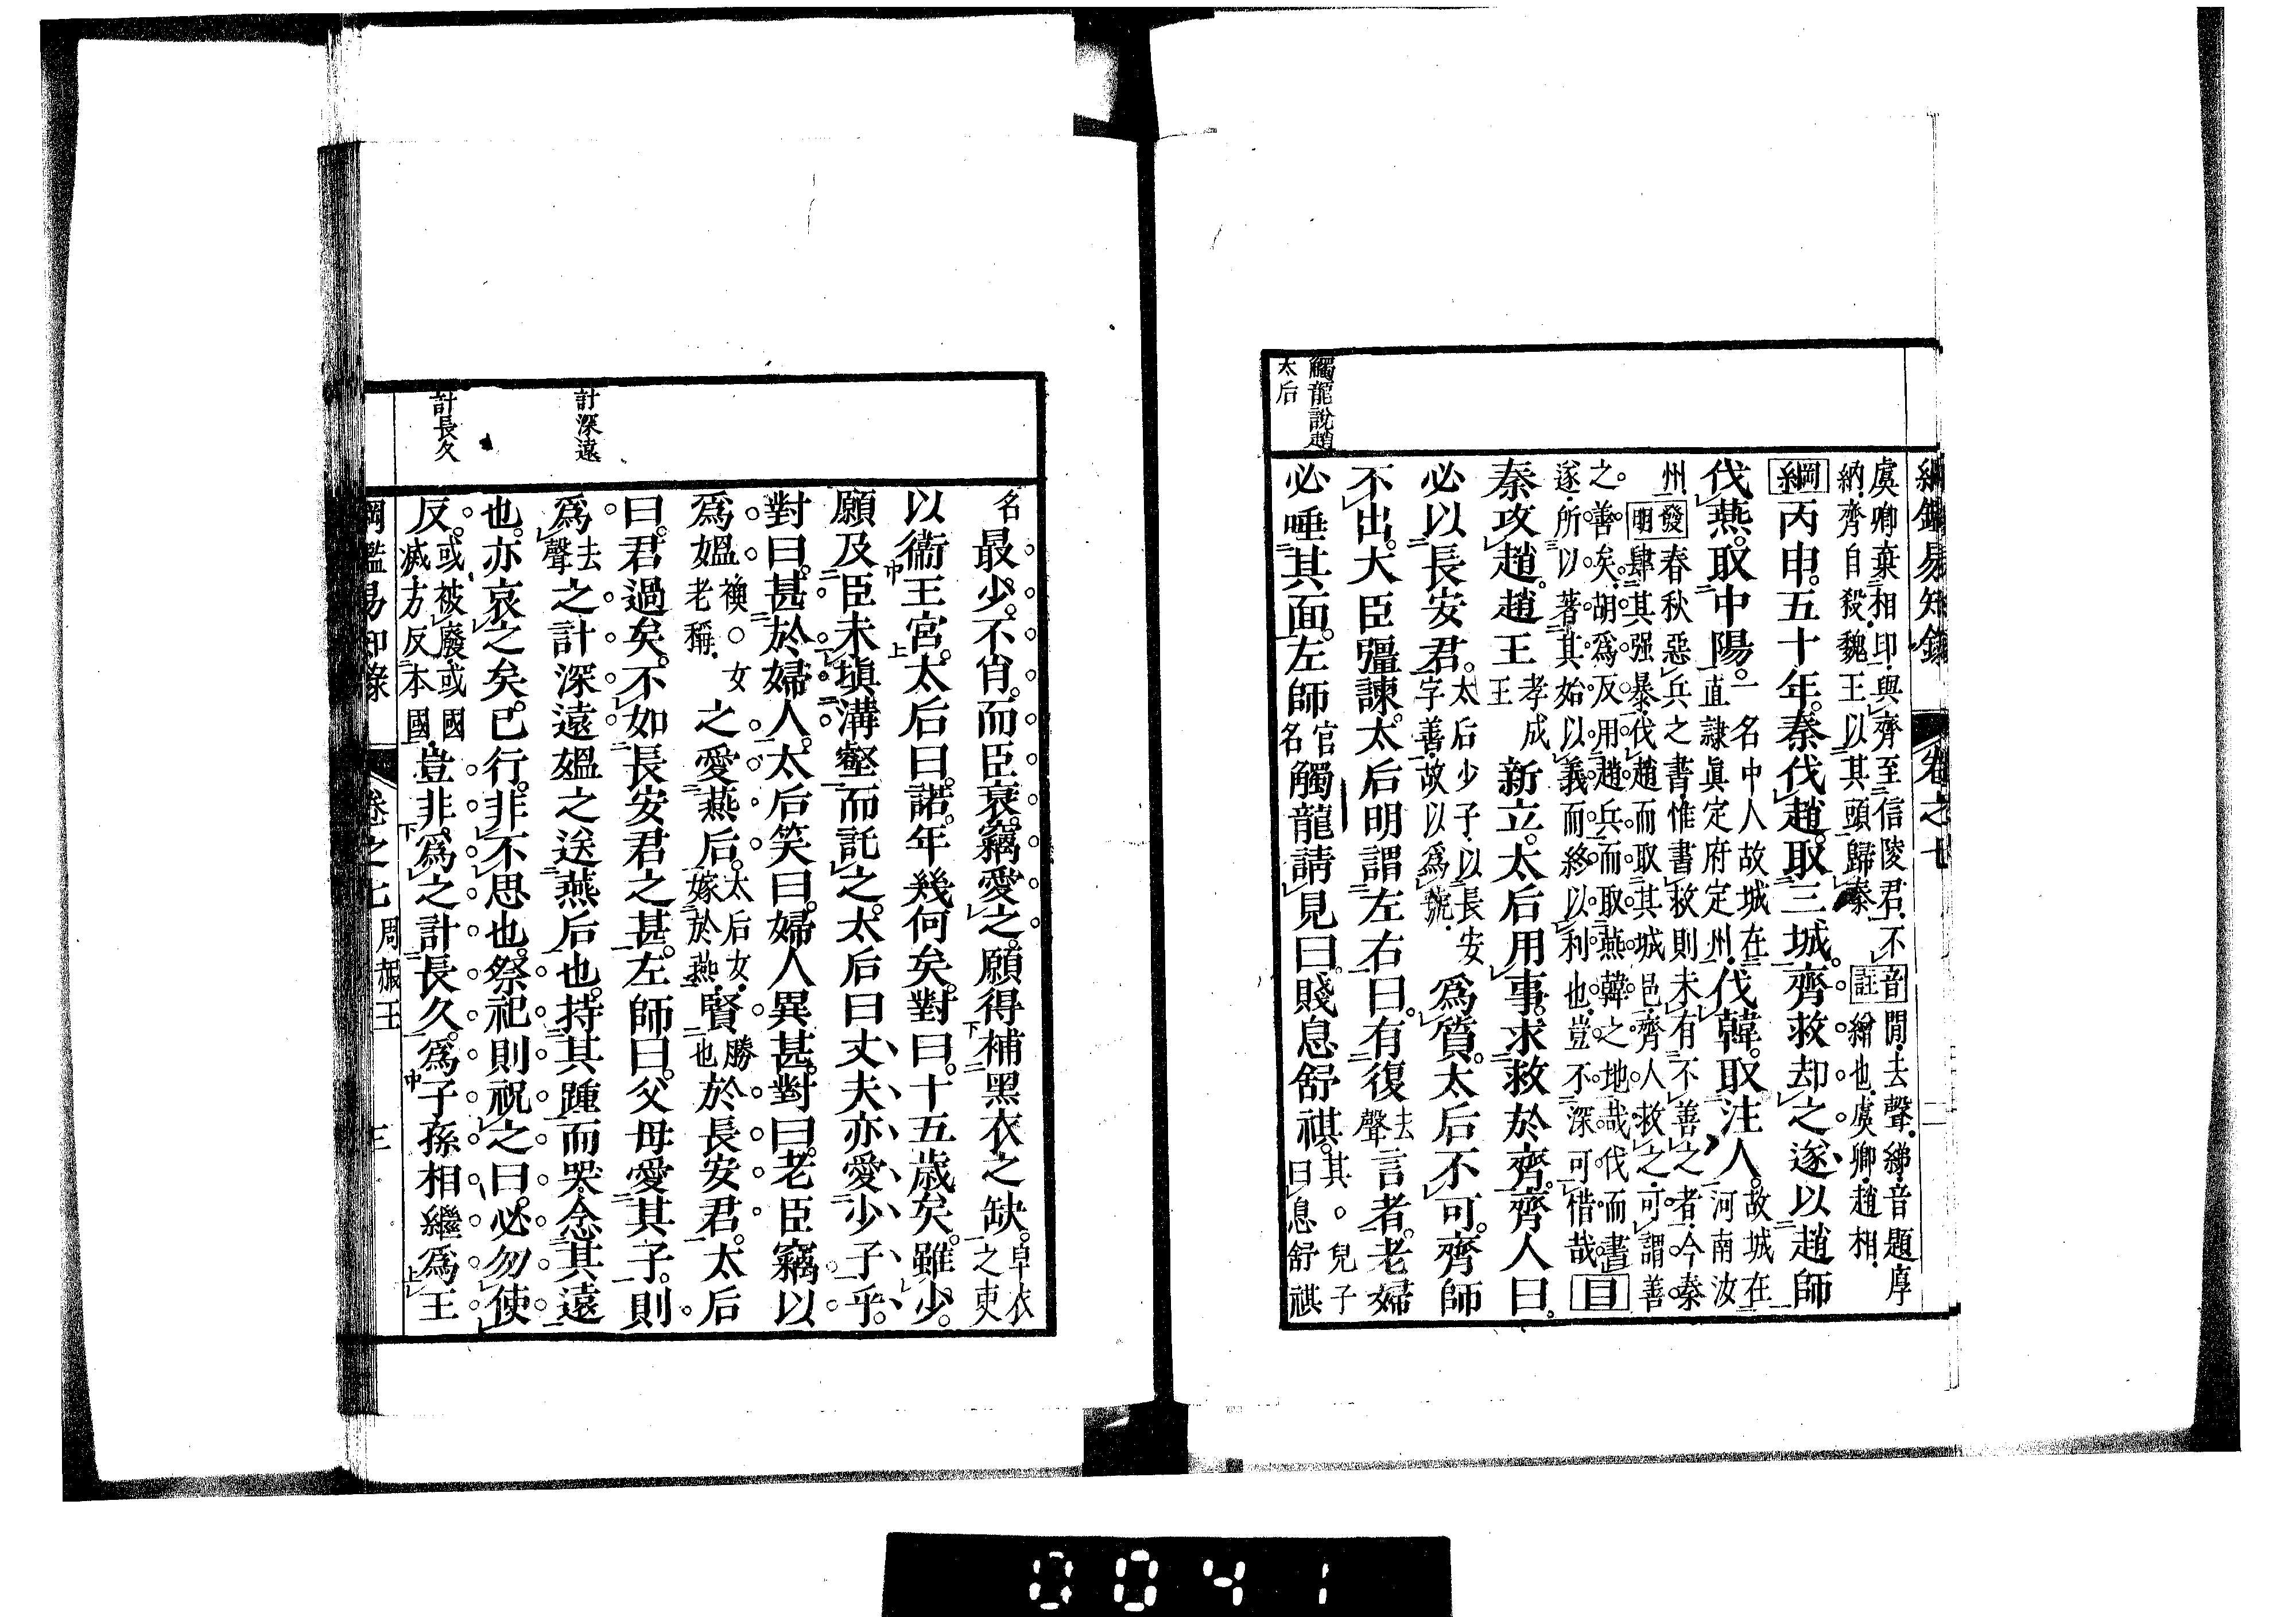 綱鑑易知錄 卷之七 二
虞卿棄相印與齊至信陵君不
納齊自殺魏王以其頭歸秦
音註 閒去聲綈音題厚
繒也虞卿趙相
綱丙申五十年秦伐趙取三城齊救却之遂以趙師
伐燕取中陽 一名中人故城在
直隷眞定府定州 伐韓取注人 故城在
河南汝
州 發明 春秋惡兵之書惟書救則未有不善之者今秦
肆其强暴伐趙而取其城邑齊人救之可謂善
之善矣胡爲反用趙兵而取燕韓之地哉伐而書
遂所以著其始以義而終以利也豈不深可惜哉 目
秦攻趙趙王 孝成
王 新立太后用事求救於齊齊人曰
必以長安君 太后少子以長安
字善故以爲號 爲質太后不可齊師
不出大臣彊諫太后明謂左右曰有復 去
聲 言者老婦
必唾其面左師 官
名 觸龍請見曰賤息舒祺 其○兒子
曰息舒祺
觸龍說趙
太后
名 最少不肖而臣衰竊愛之願得補黑衣之缺 卓衣
之吏
以衞王宮太后曰諾年幾何矣對曰十五歲矣雖少
願及臣未塡溝壑而託之太后曰丈夫亦愛少子乎
對曰甚於婦人太后笑曰婦人異甚對曰老臣竊以
爲媼 襖○女
老稱 之愛燕后 太后女
嫁於燕 賢 勝
也 於長安君太后
曰君過矣不如長安君之甚左師曰父母愛其子則
爲 去
聲 之計深遠媼之送燕后也持其踵而哭念其遠
也亦哀之矣已行非不思也祭祀則祝之曰必勿使
反 或被廢或國
滅方反本國 豈非爲之計長久爲子孫相繼爲王
計深遠
計長久
綱鑑易知錄 卷之七 周赧王 三
0041